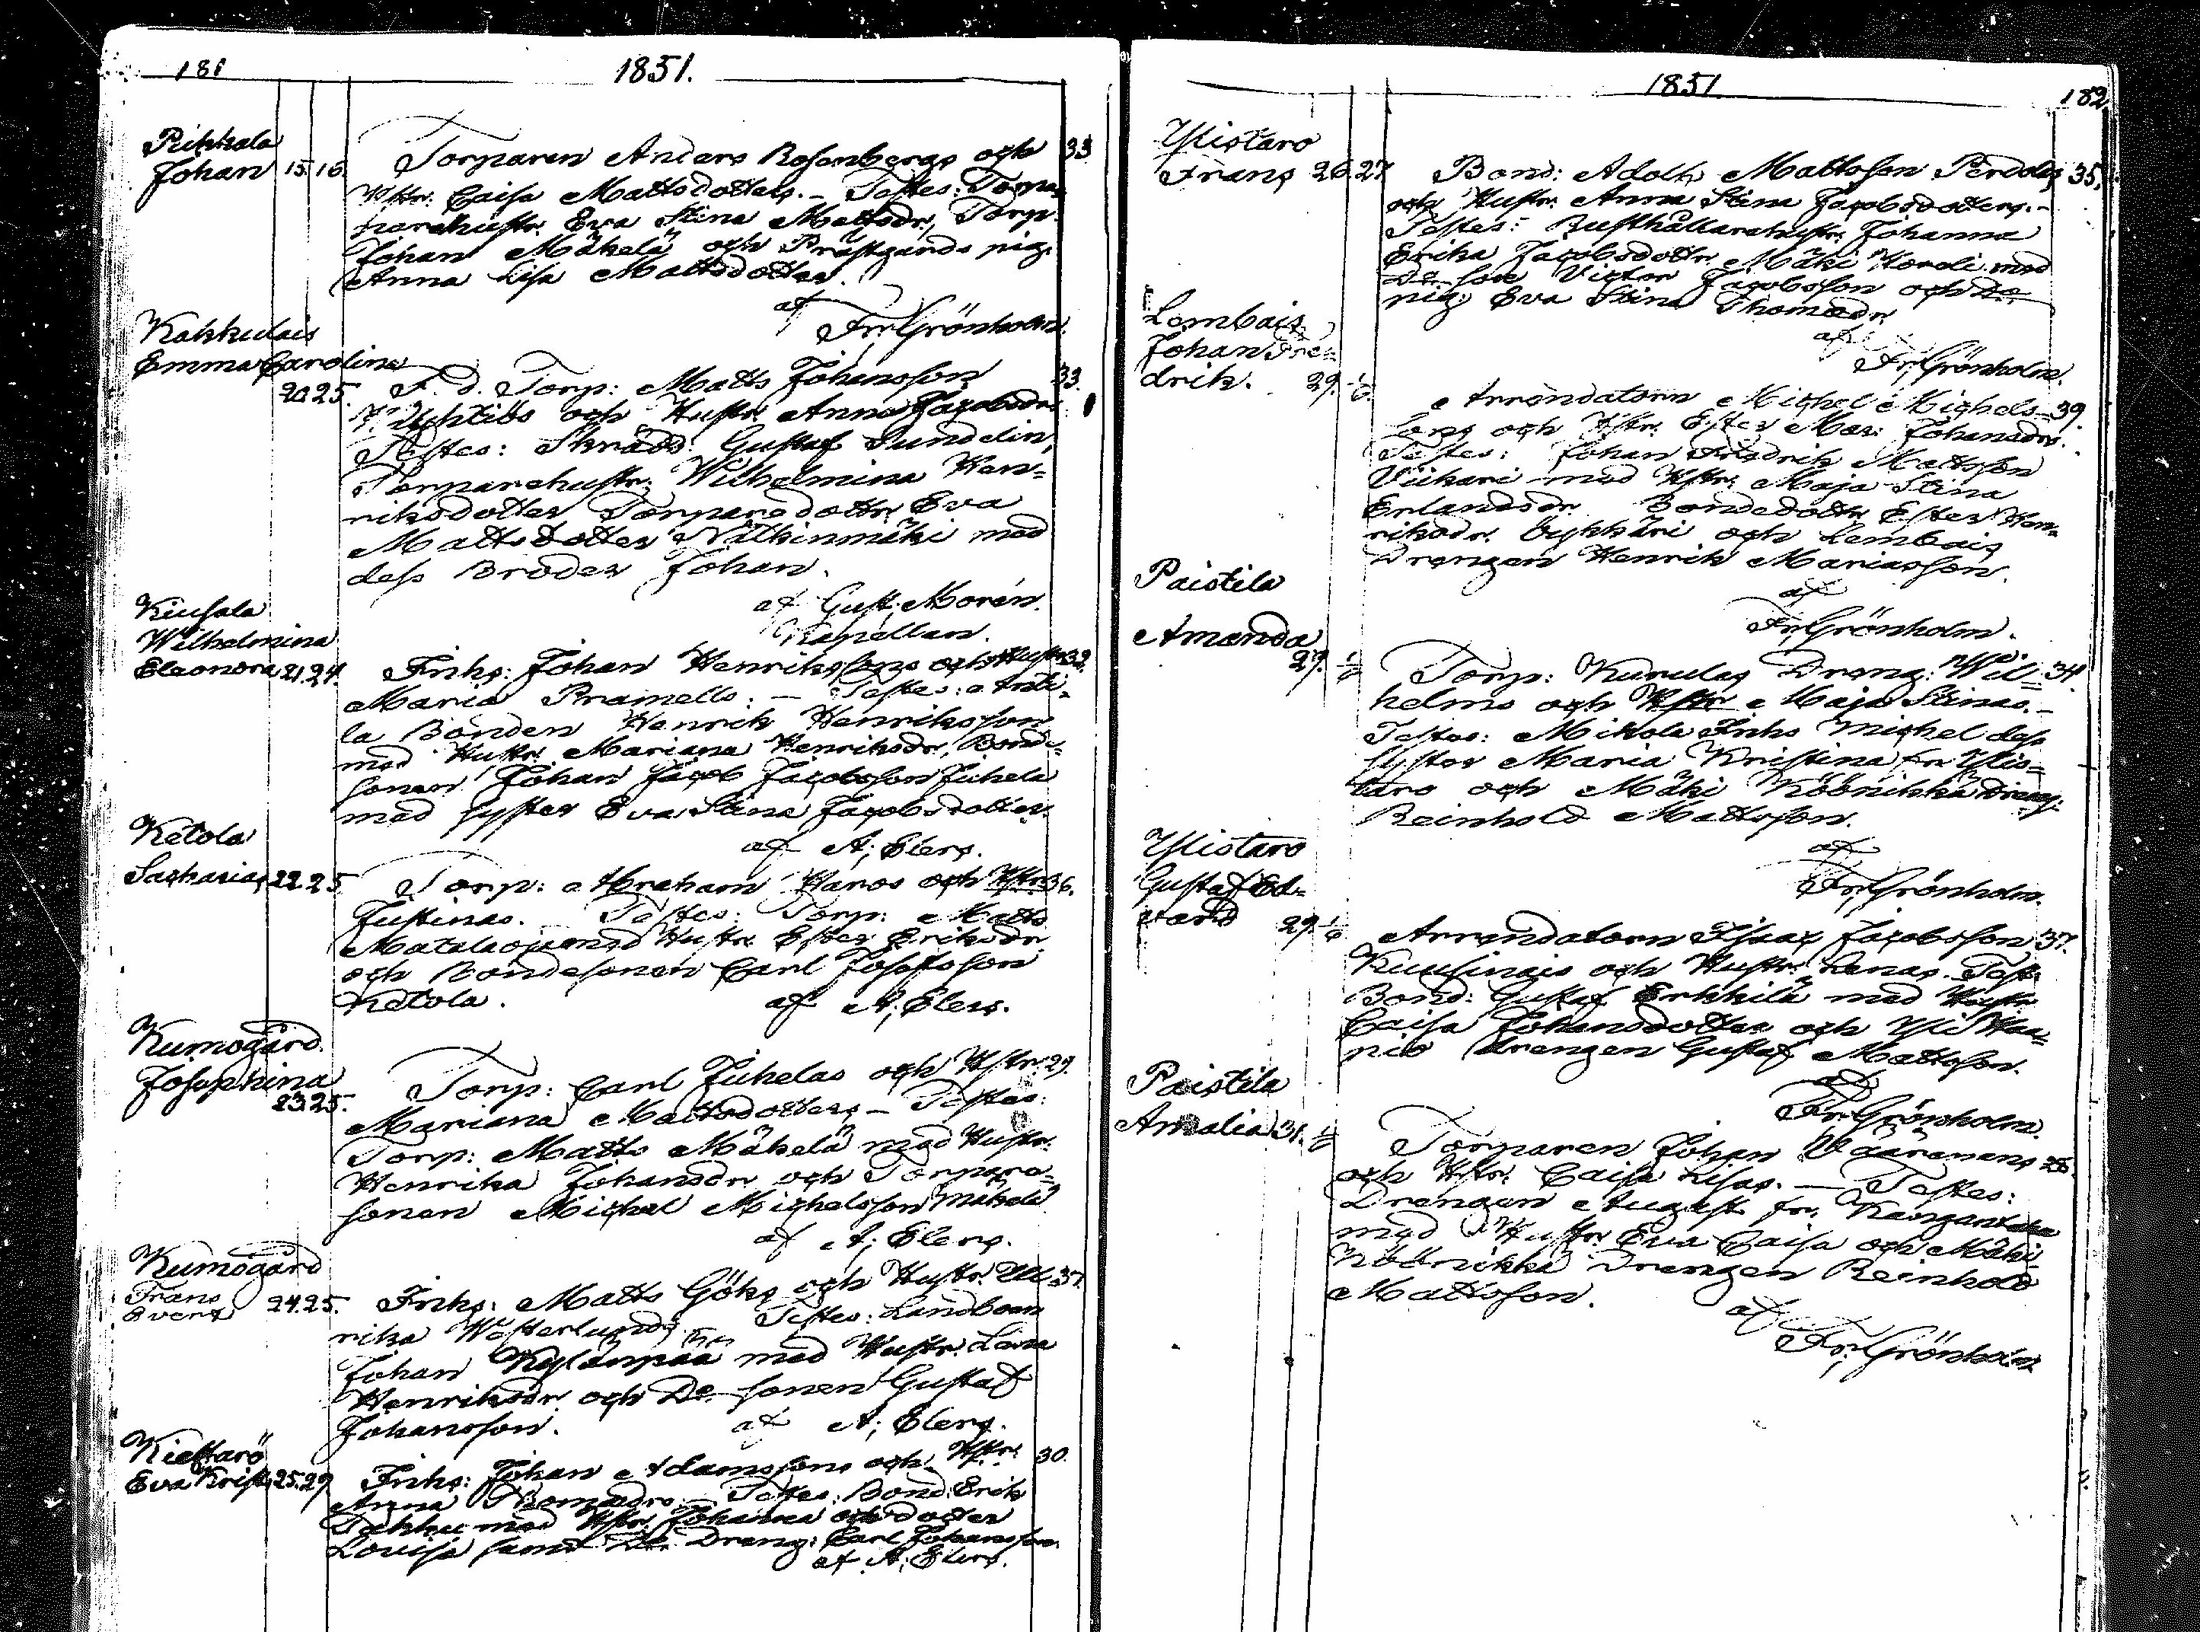 181
1851.
Pikkala
Johan 15. 16.
Torparen Anders Rosenbergs och 33.
Hstr. Caisa Mattsdotters. – Testes: Torpa
parehustr. Eva Stina Mattsdr, Torp.
Johan Mäkelä och Prästgårds pig.
Anna Lisa Mattsdotter.
af
Fr. Grönholm.
Kakkulais
Emma Carolina
20. 25.
F. d. Torp: Matts Johansson 33.
och Hustr. Anna Jacobsdrs
Testes: Skrädd. Gustaf Sundelin,
Torparehustr. Wilhelmina Hen-
riksdotter Torparedottr. Eva
Mattsdotter Nälkinmäki med
dess Broder Johan.
af Gust. Morén.
Kapellan.
Kiusala
Wilhelmina
Eleonora 21. 24.
Inhs: Johan Henrikssons och Hustr 32.
Maria Pramells. – Testes: Anti-
la Bonden Henrik Henriksson
med Hustr. Mariana Henriksdr, Bonde-
sonen Johan Jacob Jacobsson Juhela
med syster Eva Stina Jacobsdotter.
af A; Elers.
Ketola
Sacharias 22. 25.
Torp: Abraham Haros och Hstr 36.
Justinas. Testes: Torp: Matts
med Hustr. Ester Eriksdr
och Bondesonen Carl Josefsson
Ketola. af A; Elers.
Kumogård.
Josephina
23. 25.
Torp: Carl Juhelas och Hstr. 29.
Mariana Mattsdotters – Testes:
Torp: Matts Mäkelä med Hustr.
Henrika Johansdr och Torpare-
sonen Michel Michelsson Mäkelä
af A; Elers.
Kumogård
Frans
Evert 24. 25.
Inhs: Matts Göks och Hustr. Ul- 37.
rika Westerlunds Testes: Landboen
Johan Kylänpää med Hustr. Lisa
Henriksdr och Do sonen Gustaf
Johansson. af A; Elers.
Kiettarö
Eva Krist. 25. 29
Inhs: Johan Adamssons och Hstr. 30.
Anna Thomasdrs – Testes: Bond. Erik
med Hstr. Johanna och dotter
Lovisa samt Do Dreng: Carl Johansson.
af A; Elers.
1851
182.
Ylistaro
Frans 26. 27
Bond: Adolf Mattsson Perdolas 35.
och Hustr. Anna Stina Jacobsdotters. –
Testes: Rusthållarehustr. Johanna
Erika Jacobsdottr. Mäki Hordi med
Do son Victor Jacobsson och Do
pig. Eva Stina Thomasdr.
af
Fr. Grönholm.
Lembais
Johan Fre-
drik. 29. 1/6.
Arrendatorn Michel Michels- 39.
sons och Hstr. Ester Mar: Johansdrs.
Testes: Johan Fredrik Mattsson
Viikari med Hstr. Maja Stina
Erlandsdr. Bondedottr Ester Hen-
riksdr. Cykkäri och Lembais
Drengen Henrik Mariasson.
af
Fr. Grönholm.
Paistila
Amanda
29. 1/6
Torp: Kurulas Dreng: Wil- 34.
helms och Hstr Maja Stinas. –
Testes: Mikola Inhs Michel dess
syster Maria Kristina fr. Ylis-
taro och Mäki Köönikkä Dreng:
Reinhold Mattsson.
af
Fr. Grönholm.
Ylistaro
Gustaf Ed-
vard 29. 1/6
Arrendatorn Isaac Jacobsson 37.
Kuusinais och Hustr. Lenas. Test:
Bond: Gustaf Erkkilä med Hustr
Caisa Johansdotter och Yli Haa-
pio Drengen Gustaf Mattsson.
af
Fr. Grönholm.
Paistila
Amalia 31. 1/6
Torparen Johan Vääränens 28.
och Hstr. Caisa Lisas. – Testes:
Drengen August fr.
med Hustr. Eva Caisa och Mäki
Köönikkä Drengen Reinhold
Mattsson.
af
Fr. Grönholm